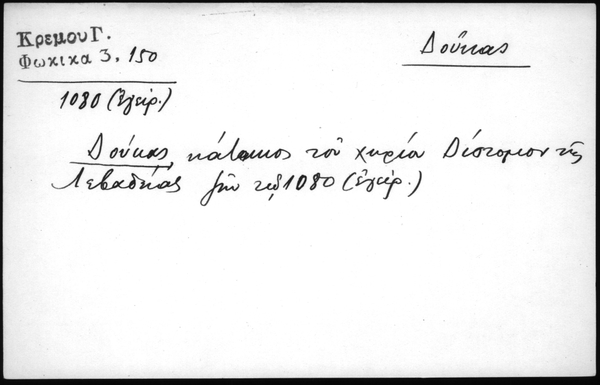 Κρεμου Γ.
Φωκικα 3, 150
Δούκας
1080 (Ἐγείρ.)
Δούκας, κάτοικος τοῦ χωρίου Δίστομον τῆς
Λεβαδείας ζῶν τῷ 1080 (Ἐγείρ.)